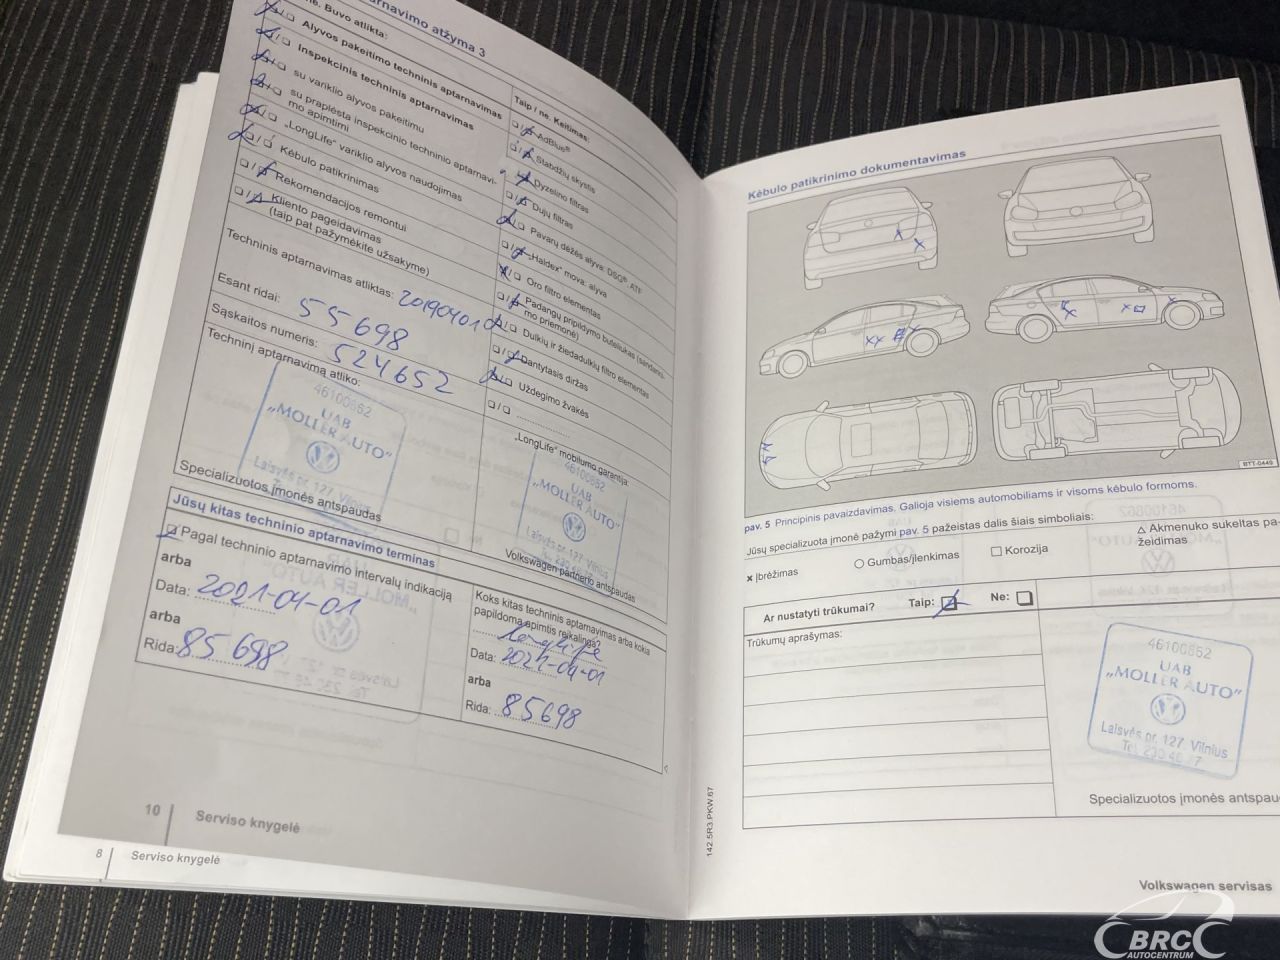 aptarnavimo atžyma 3
ne. Buvo atlikta:
Alyvos pakeitimo techninis aptarnavimas
Inspekcinis techninis aptarnavimas
su variklio alyvos pakeitimu
su praplėsta inspekcinio techninio aptarnavi-
mo apimtimi
„LongLife“ variklio alyvos naudojimas
Kėbulo patikrinimas
Rekomendacijos remontui
Kliento pageidavimas
(taip pat pažymėkite užsakyme)
Techninis aptarnavimas atliktas: 20190401
Esant ridai: 55698
Sąskaitos numeris: 524652
Techninį aptarnavimą atliko:
46100862
UAB
„MOLLER AUTO“
Laisvės pr. 127, Vilnius
Specializuotos įmonės antspaudas
Taip / ne. Keitimas:
AdBlue®
Stabdžių skystis
Dyzelino filtras
Dujų filtras
Pavarų dėžės alyva: DSG®, ATF
„Haldex“ mova: alyva
Oro filtro elementas
Padangų pripildymo buteliukas (sandarini-
mo priemonė)
Dulkių ir žiedadulkių filtro elementas
Dantytasis diržas
Uždegimo žvakės
„LongLife“ mobilumo garantija:
46100862
UAB
„MOLLER AUTO“
Laisvės pr. 127, Vilnius
Volkswagen partnerio antspaudas
Jūsų kitas techninio aptarnavimo terminas
Pagal techninio aptarnavimo intervalų indikaciją
arba
Data: 2021-04-01
arba
Rida: 85698
Koks kitas techninis aptarnavimas arba kokia
papildoma apimtis reikalinga?
Longlife
Data: 2021-04-01
arba
Rida: 85698
10 Serviso knygelė
8 Serviso knygelė
Kėbulo patikrinimo dokumentavimas
BTT-0449
pav. 5 Principinis pavaizdavimas. Galioja visiems automobiliams ir visoms kėbulo formoms.
Jūsų specializuota įmonė pažymi pav. 5 pažeistas dalis šiais simboliais:
x Įbrėžimas
○ Gumbas/įlenkimas
□ Korozija
△ Akmenuko sukeltas pa-
žeidimas
Ar nustatyti trūkumai? Taip: Ne:
Trūkumų aprašymas:
46100862
UAB
„MOLLER AUTO“
Laisvės pr. 127, Vilnius
Specializuotos įmonės antspaud
142.5R3.PKW.67
Volkswagen servisas
BRC
AUTOCENTRUM